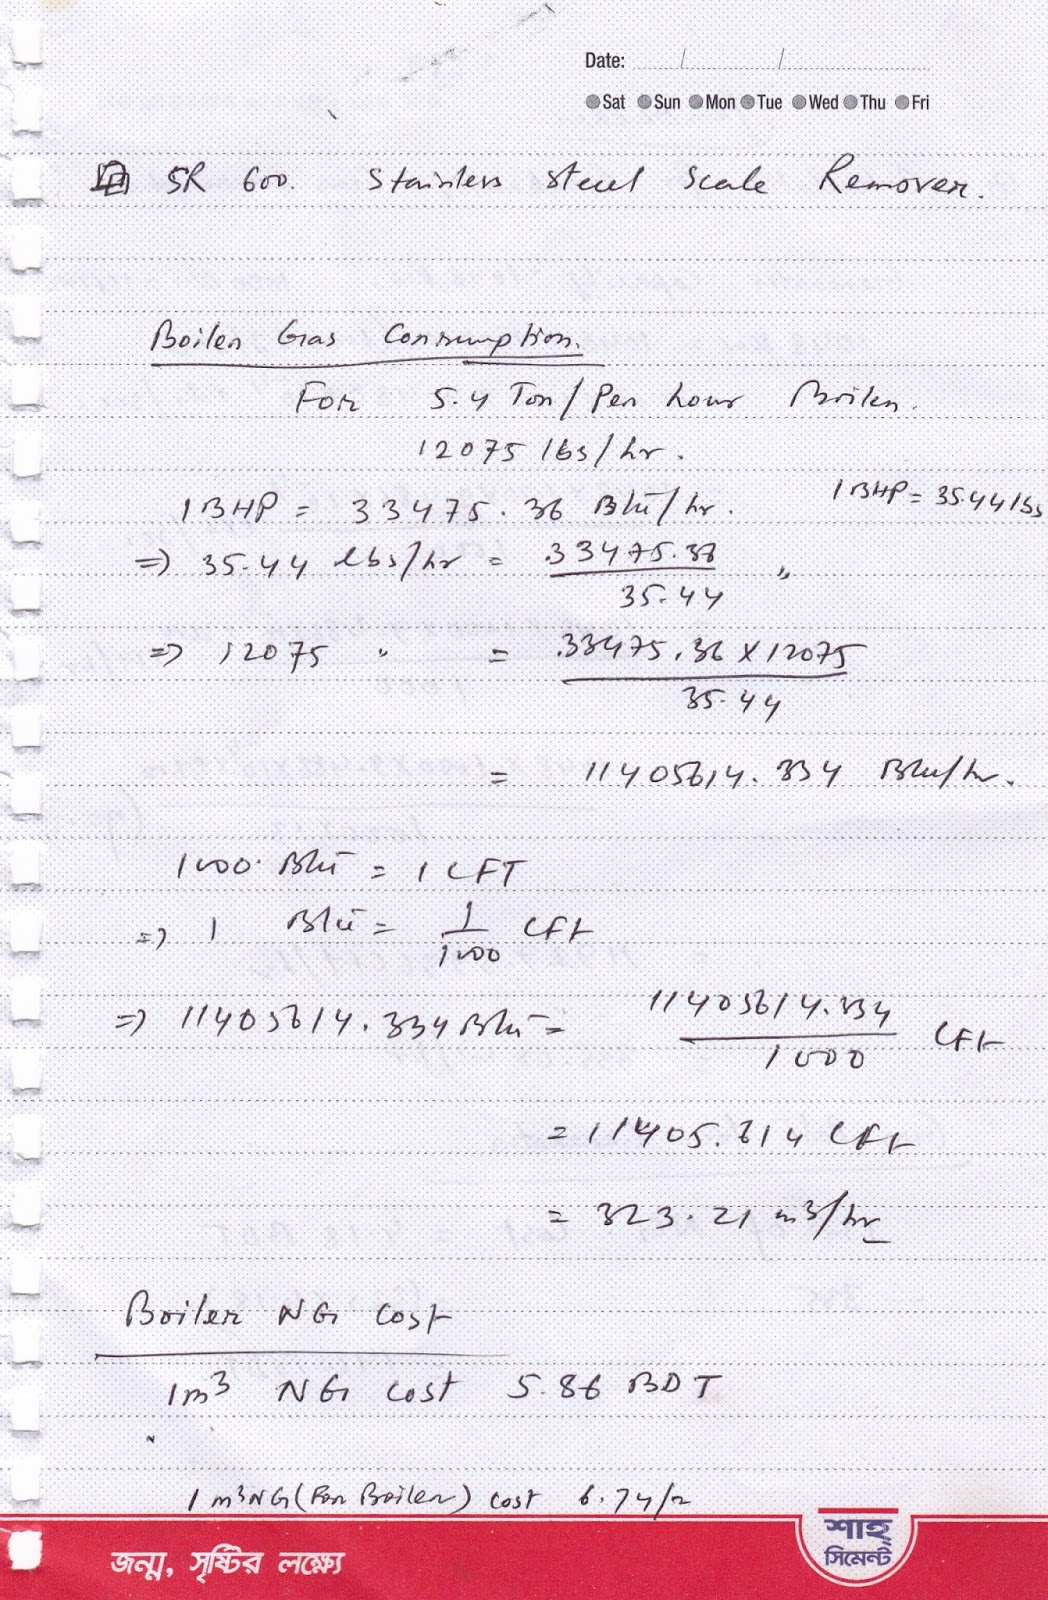 Date:
Sat Sun Mon Tue Wed Thu Fri
SR 600. Stainless steel Scale Remover.
Boiler Gas Consumption.
For 5.4 Ton/Per hour Boiler.
12075 lbs/hr.
1 BHP = 33475.36 Btu/hr. 1 BHP = 35.44 lbs
=> 35.44 lbs/hr = 33475.36 / 35.44 "
=> 12075 " = 33475.36 X 12075 / 35.44
= 11405614.334 Btu/hr.
1000 Btu = 1 CFT
=> 1 Btu = 1/1000 CFt
=> 11405614.334 Btu = 11405614.334 / 1000 CFt
= 11405.614 CFt
= 323.21 m3/hr
Boiler NG Cost
1m³ NG Cost 5.86 BDT
1 m³ NG (For Boiler) cost 6.74/=
জন্ম, সৃষ্টির লক্ষ্যে
শাহ্
সিমেন্ট